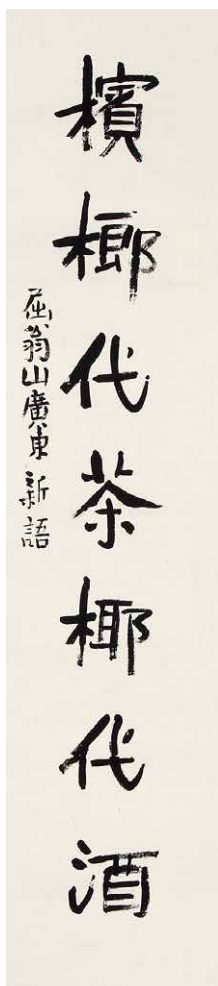 檳榔代茶椰代酒
屈翁山廣東新語